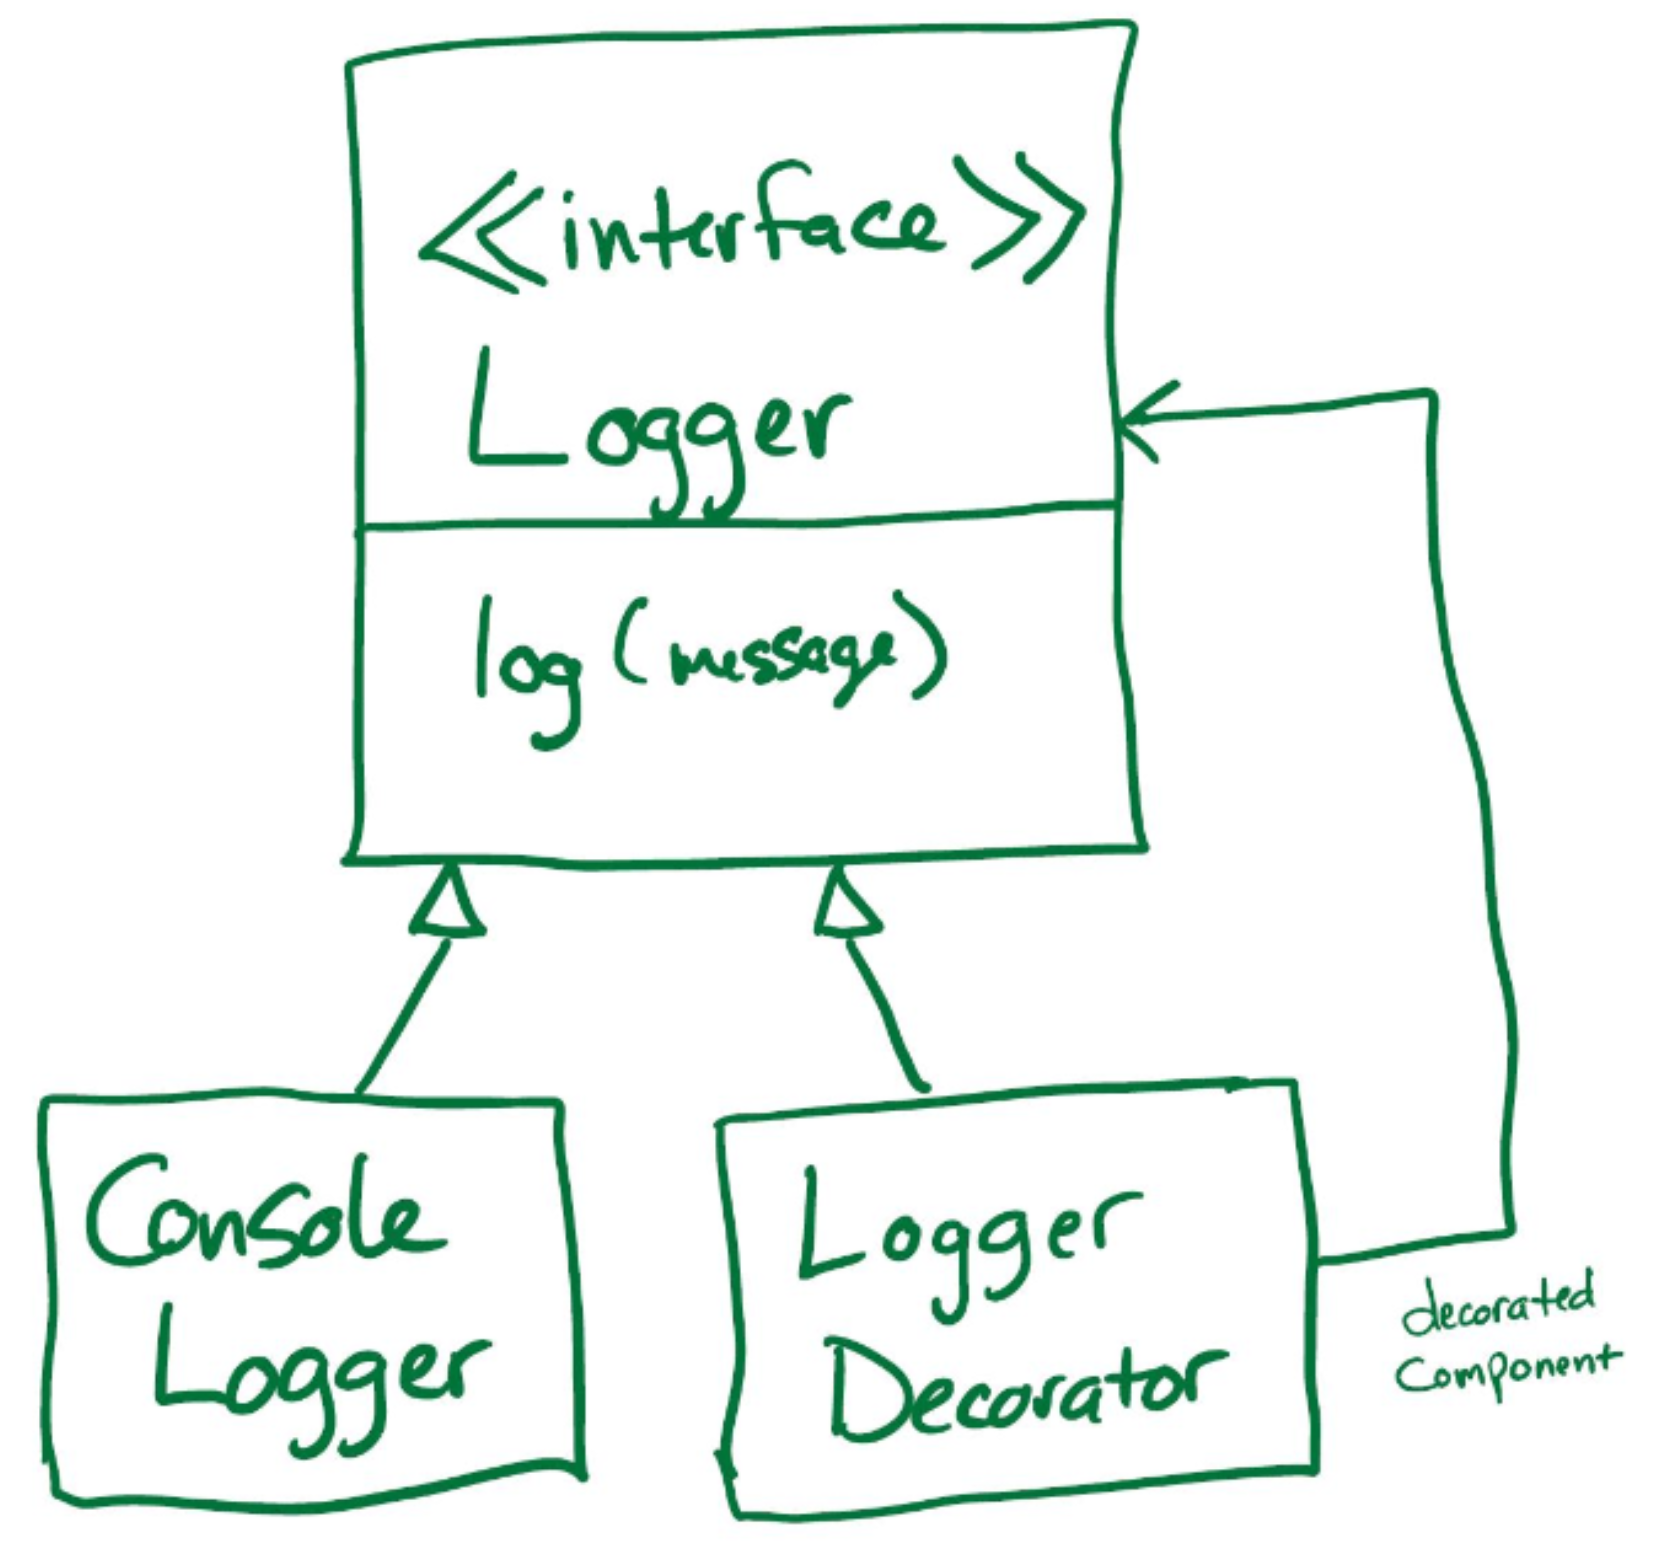 <<interface>>
Logger
log (message)
Console
Logger
Logger
Decorator
decorated
component